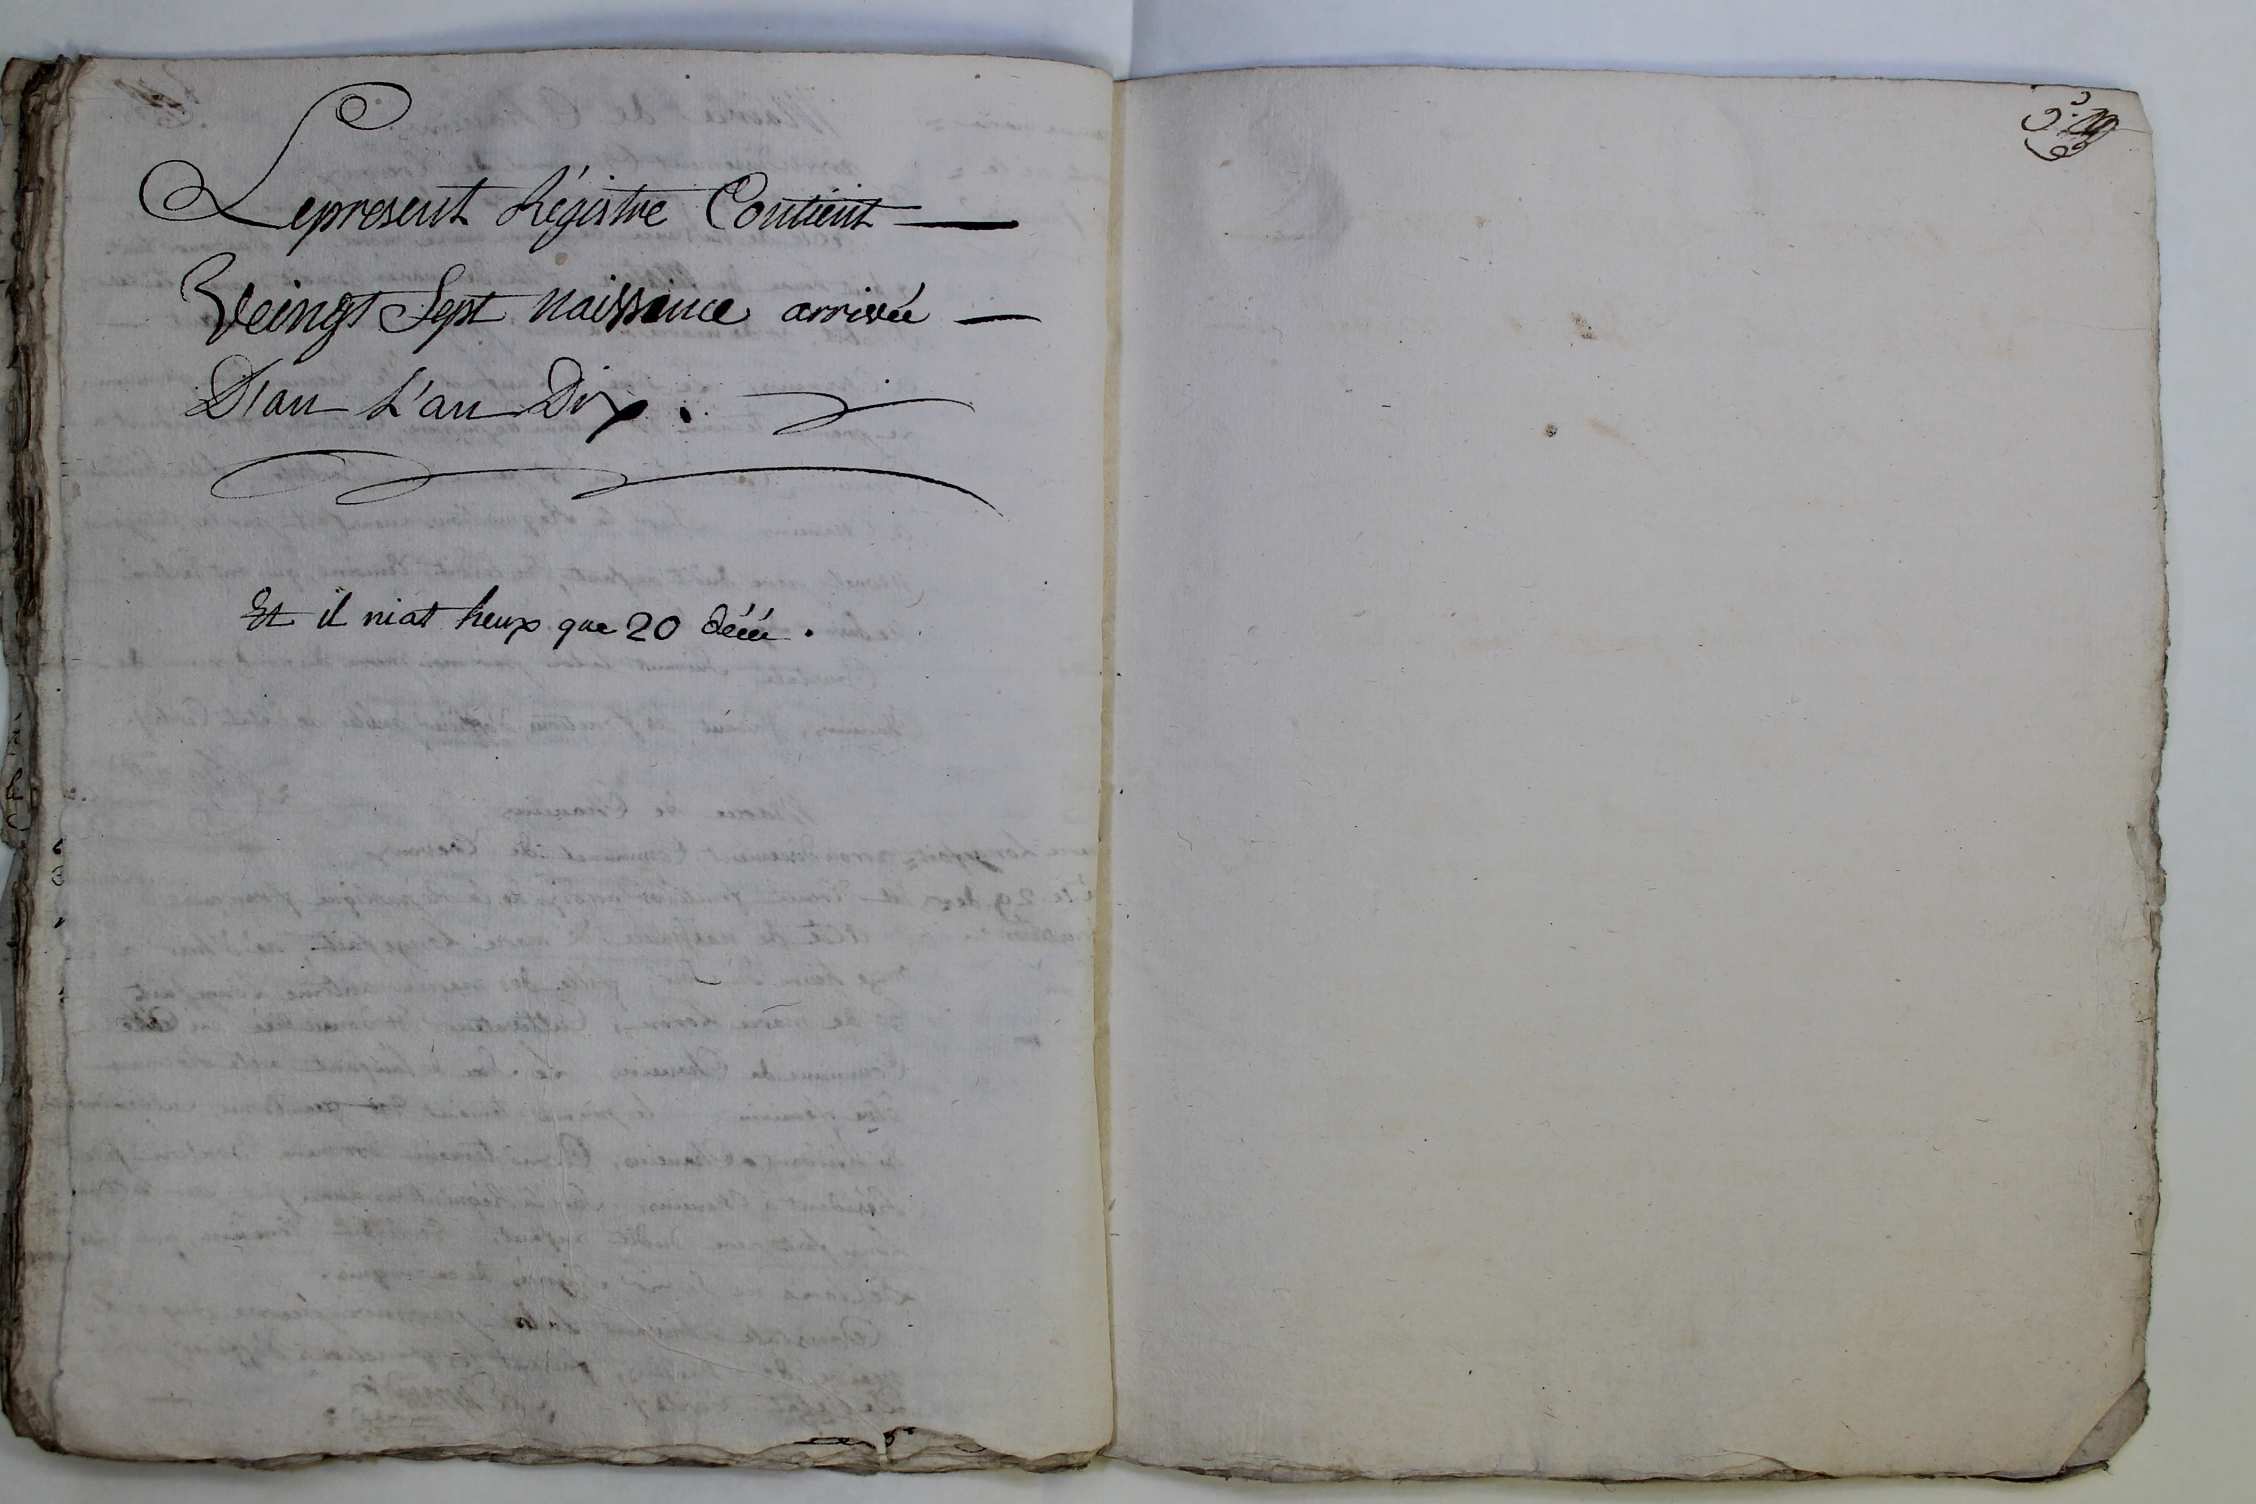 Lepresent Régistre Contient
Veingt Sept naissance arrivée
D'an L'an Dix.
Et il niat heux que 20 décéé.